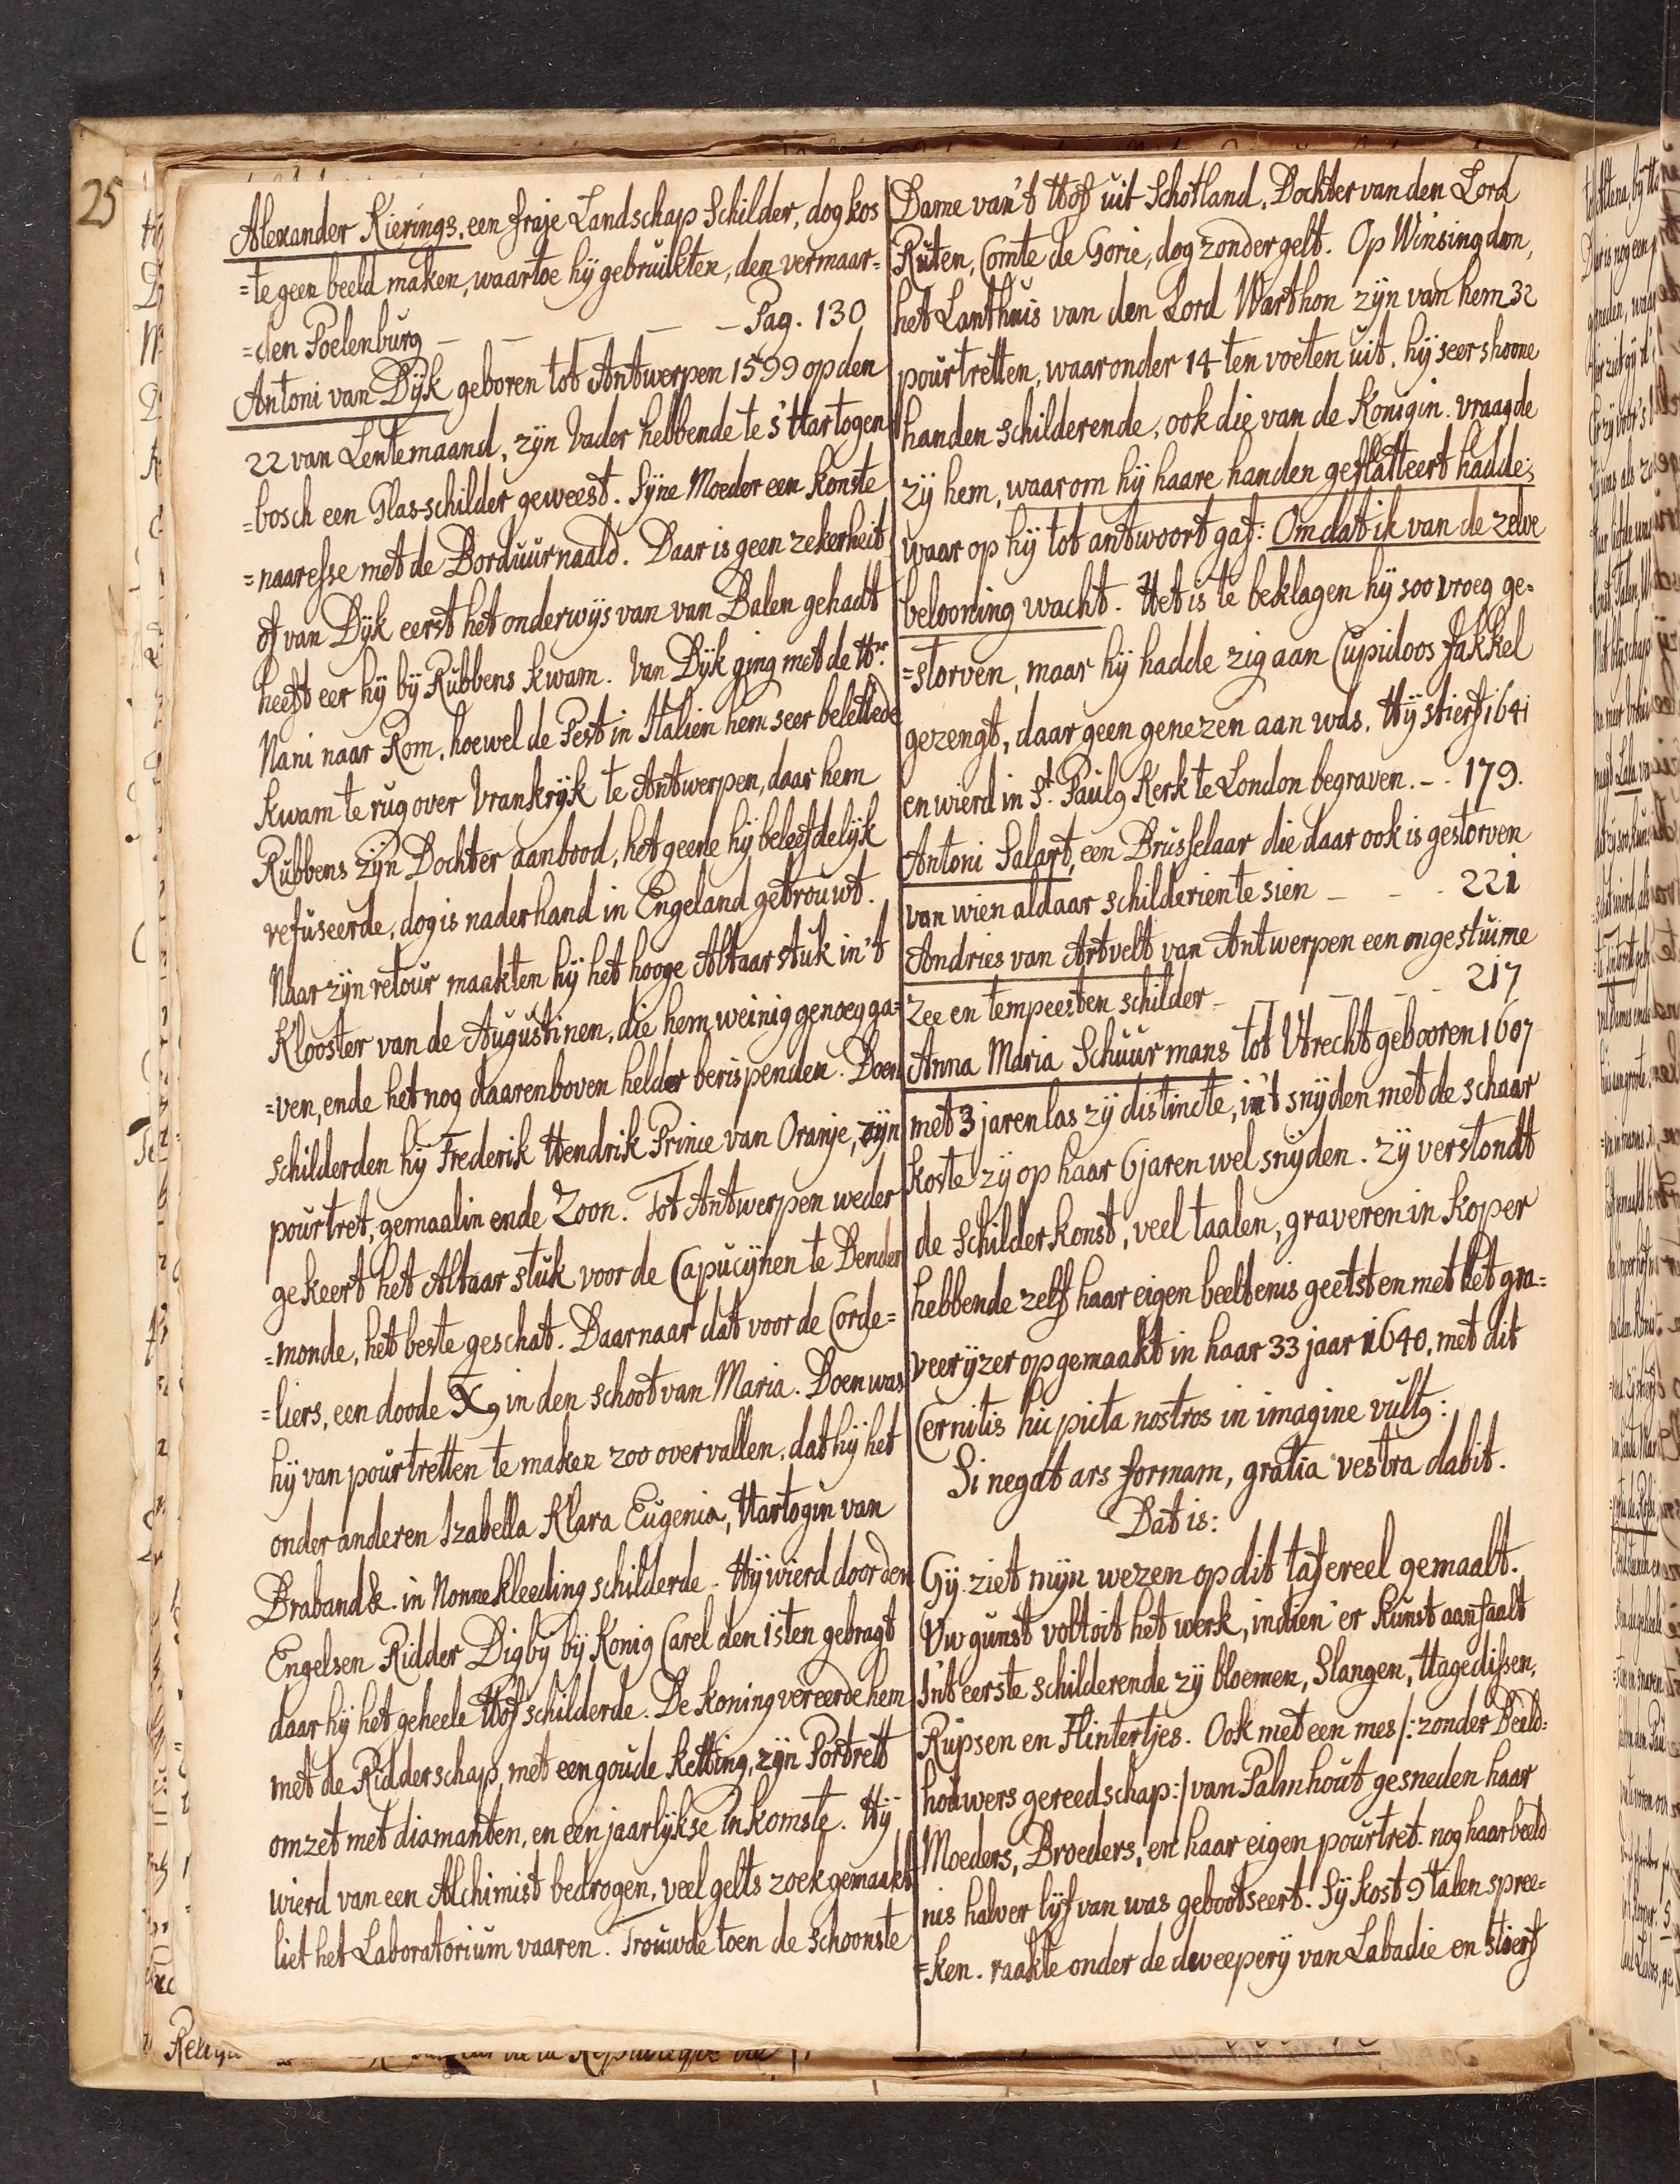 25
Alexander Kierings, een fraje Landschap Schilder, dog kos
=te geen beeld maken, waartoe hÿ gebruikten, den vermaar=
=den Poelenburg — — — — Pag. 130
Antoni van Dÿk geboren tot Antwerpen 1599 op den
22 van Lentemaand, zÿn Vader hebbende te s'Hartogen
=bosch een Glas-schilder geweest. Sÿne Moeder een konste
=naaresse met de Borduurnaald. Daar is geen zekerheit
of van Dÿk eerst het onderwÿs van van Balen gehadt
heeft eer hÿ bÿ Rubbens kwam. Van Dÿk ging met de Hr.
Nani naar Rom, hoewel de Pest in Italien hem seer belettede
kwam te rug over Vrankrÿk te Antwerpen, daar hem
Rubbens zÿn Dochter aanbood, het geene hÿ beleefdelÿk
refuseerde, dog is naderhand in Engeland getrouwt.
Naar zÿn retour maakten hÿ het hooge Altaar stuk in't
Klooster van de Augustinen, die hem weinig genoeg ga=
=ven, ende het nog daarenboven helder berispenden. Doen
schilderden hÿ Frederik Hendrik Prince van Oranje, zÿn
pourtret, gemaalin ende Zoon. Tot Antwerpen weder
gekeert het Altaar stuk voor de Capucÿnen te Dender
=monde, het beste geschat. Daarnaar dat voor de Corde=
=liers, een doode X9 in den schoot van Maria. Doen was
hÿ van pourtretten te maken zoo overvallen, dat hÿ het
onder anderen Izabella Klara Eugenia, Hartogin van
Braband &. in Nonnekleeding schilderde. Hÿ wierd door den
Engelsen Ridder Digbÿ bÿ Konig Carel den 1sten gebragt
daar hÿ het geheele Hof schilderde. De koning vereerde hem
met de Ridderschap, met een goude ketting, zÿn Portrett
omzet met diamanten, en een jaarlÿkse inkomste. Hÿ
wierd van een Alchimist bedrogen, veel gelts zoek gemaakt
liet het Laboratorium vaaren. Trouwde toen de schoonste
Dame van't Hof uit Schotland, Dochter van den Lord
Ruten, Comte de Gorie, dog zonder gelt. Op Winsingdon,
het Lanthuis van den Lord Warthon zÿn van hem 32
pourtretten, waaronder 14 ten voeten uit. hÿ seer shoone
handen schilderende, ook die van de Konigin. vraagde
zÿ hem, waarom hÿ haare handen geflatteert hadde;
waar op hÿ tot antwoort gaf: Omdat ik van de zelve
belooning wacht. Het is te beklagen hÿ soo vroeg ge=
=storven, maar hÿ hadde zig aan Cupidoos fakkel
gezengt, daar geen genezen aan was. Hÿ stierf 1641
en wierd in St. Paul9 Kerk te London begraven. - - 179.
Antoni Salart, een Brusselaar die daar ook is gestorven
van wien aldaar schilderien te sien — - - 221
Andries van Artvelt van Antwerpen een ongestuime
Zee en tempeesten schilder — — — - - 217
Anna Maria Schuurmans tot Utrecht gebooren 1607
met 3 jaren las zÿ distincte, in't snÿden met de schaar
koste zÿ op haar 6 jaren wel snÿden. zÿ verstondt
de schilderkonst, veel taalen, graveren in koper
hebbende zelf haar eigen beeltenis geetst en met het gra=
veerÿzer opgemaakt in haar 33 jaar 1640, met dit
Cernitis hic picta nostros in imagine vult9:
Si negat ars formam, gratia vestra dabit.
Dat is:
Gÿ ziet mÿn wezen op dit tafereel gemaalt.
Uw gunst voltoit het werk, indien'er kunst aanfaalt
In't eerste schilderende zÿ bloemen, Slangen, Hagedissen,
Rupsen en Flintertjes. Ook met een mes /: zonder Beeld=
houwers gereedschap :/ van Palmhout gesneden haar
Moeders, Broeders, en haar eigen pourtret. nog haar beeld
nis halver lÿf van was gebootseert. Sÿ kost 9 talen spree=
=ken. raakte onder de dweeperÿ van Labadie en stierf